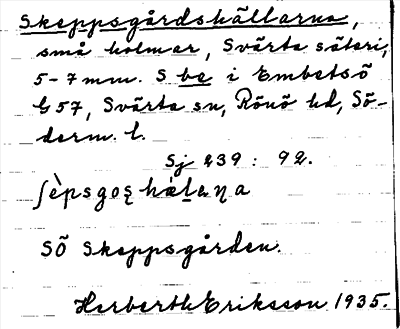 Skeppsgårdshällarna,
små holmar, Svärta säteri,
5-7 mm. S be i Embetsö
G 57, Svärta sn, Rönö hd, Sö-
derm. l.
Sj 239 : 92.
SÖ Skeppsgården.
Herberth Eriksson 1935.